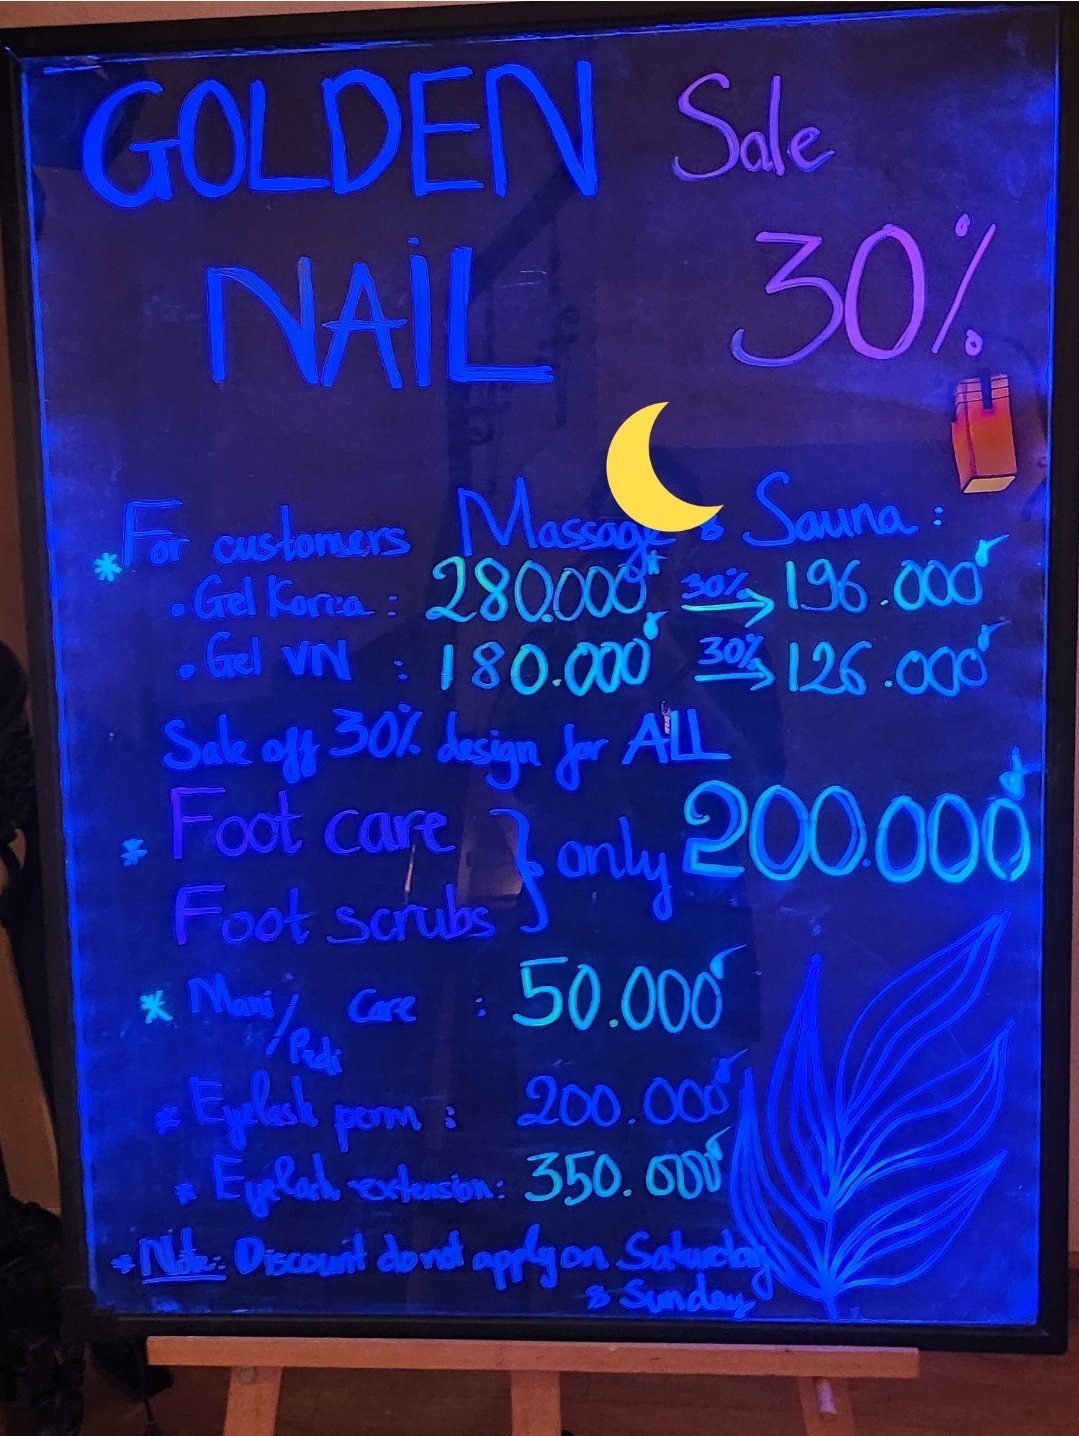 GOLDEN Sale
NAiL 30%
* For customers Massage & Sauna :
. Gel Korea : 280.000đ 30% → 196.000đ
. Gel VN : 180.000đ 30% → 126.000đ
Sale off 30% design for ALL
* Foot care } only 200.000đ
Foot scrubs
* Mani/Pedi Care : 50.000đ
* Eyelash perm : 200.000đ
* Eyelash extension : 350.000đ
* Note: Discount do not apply on Saturday
& Sunday